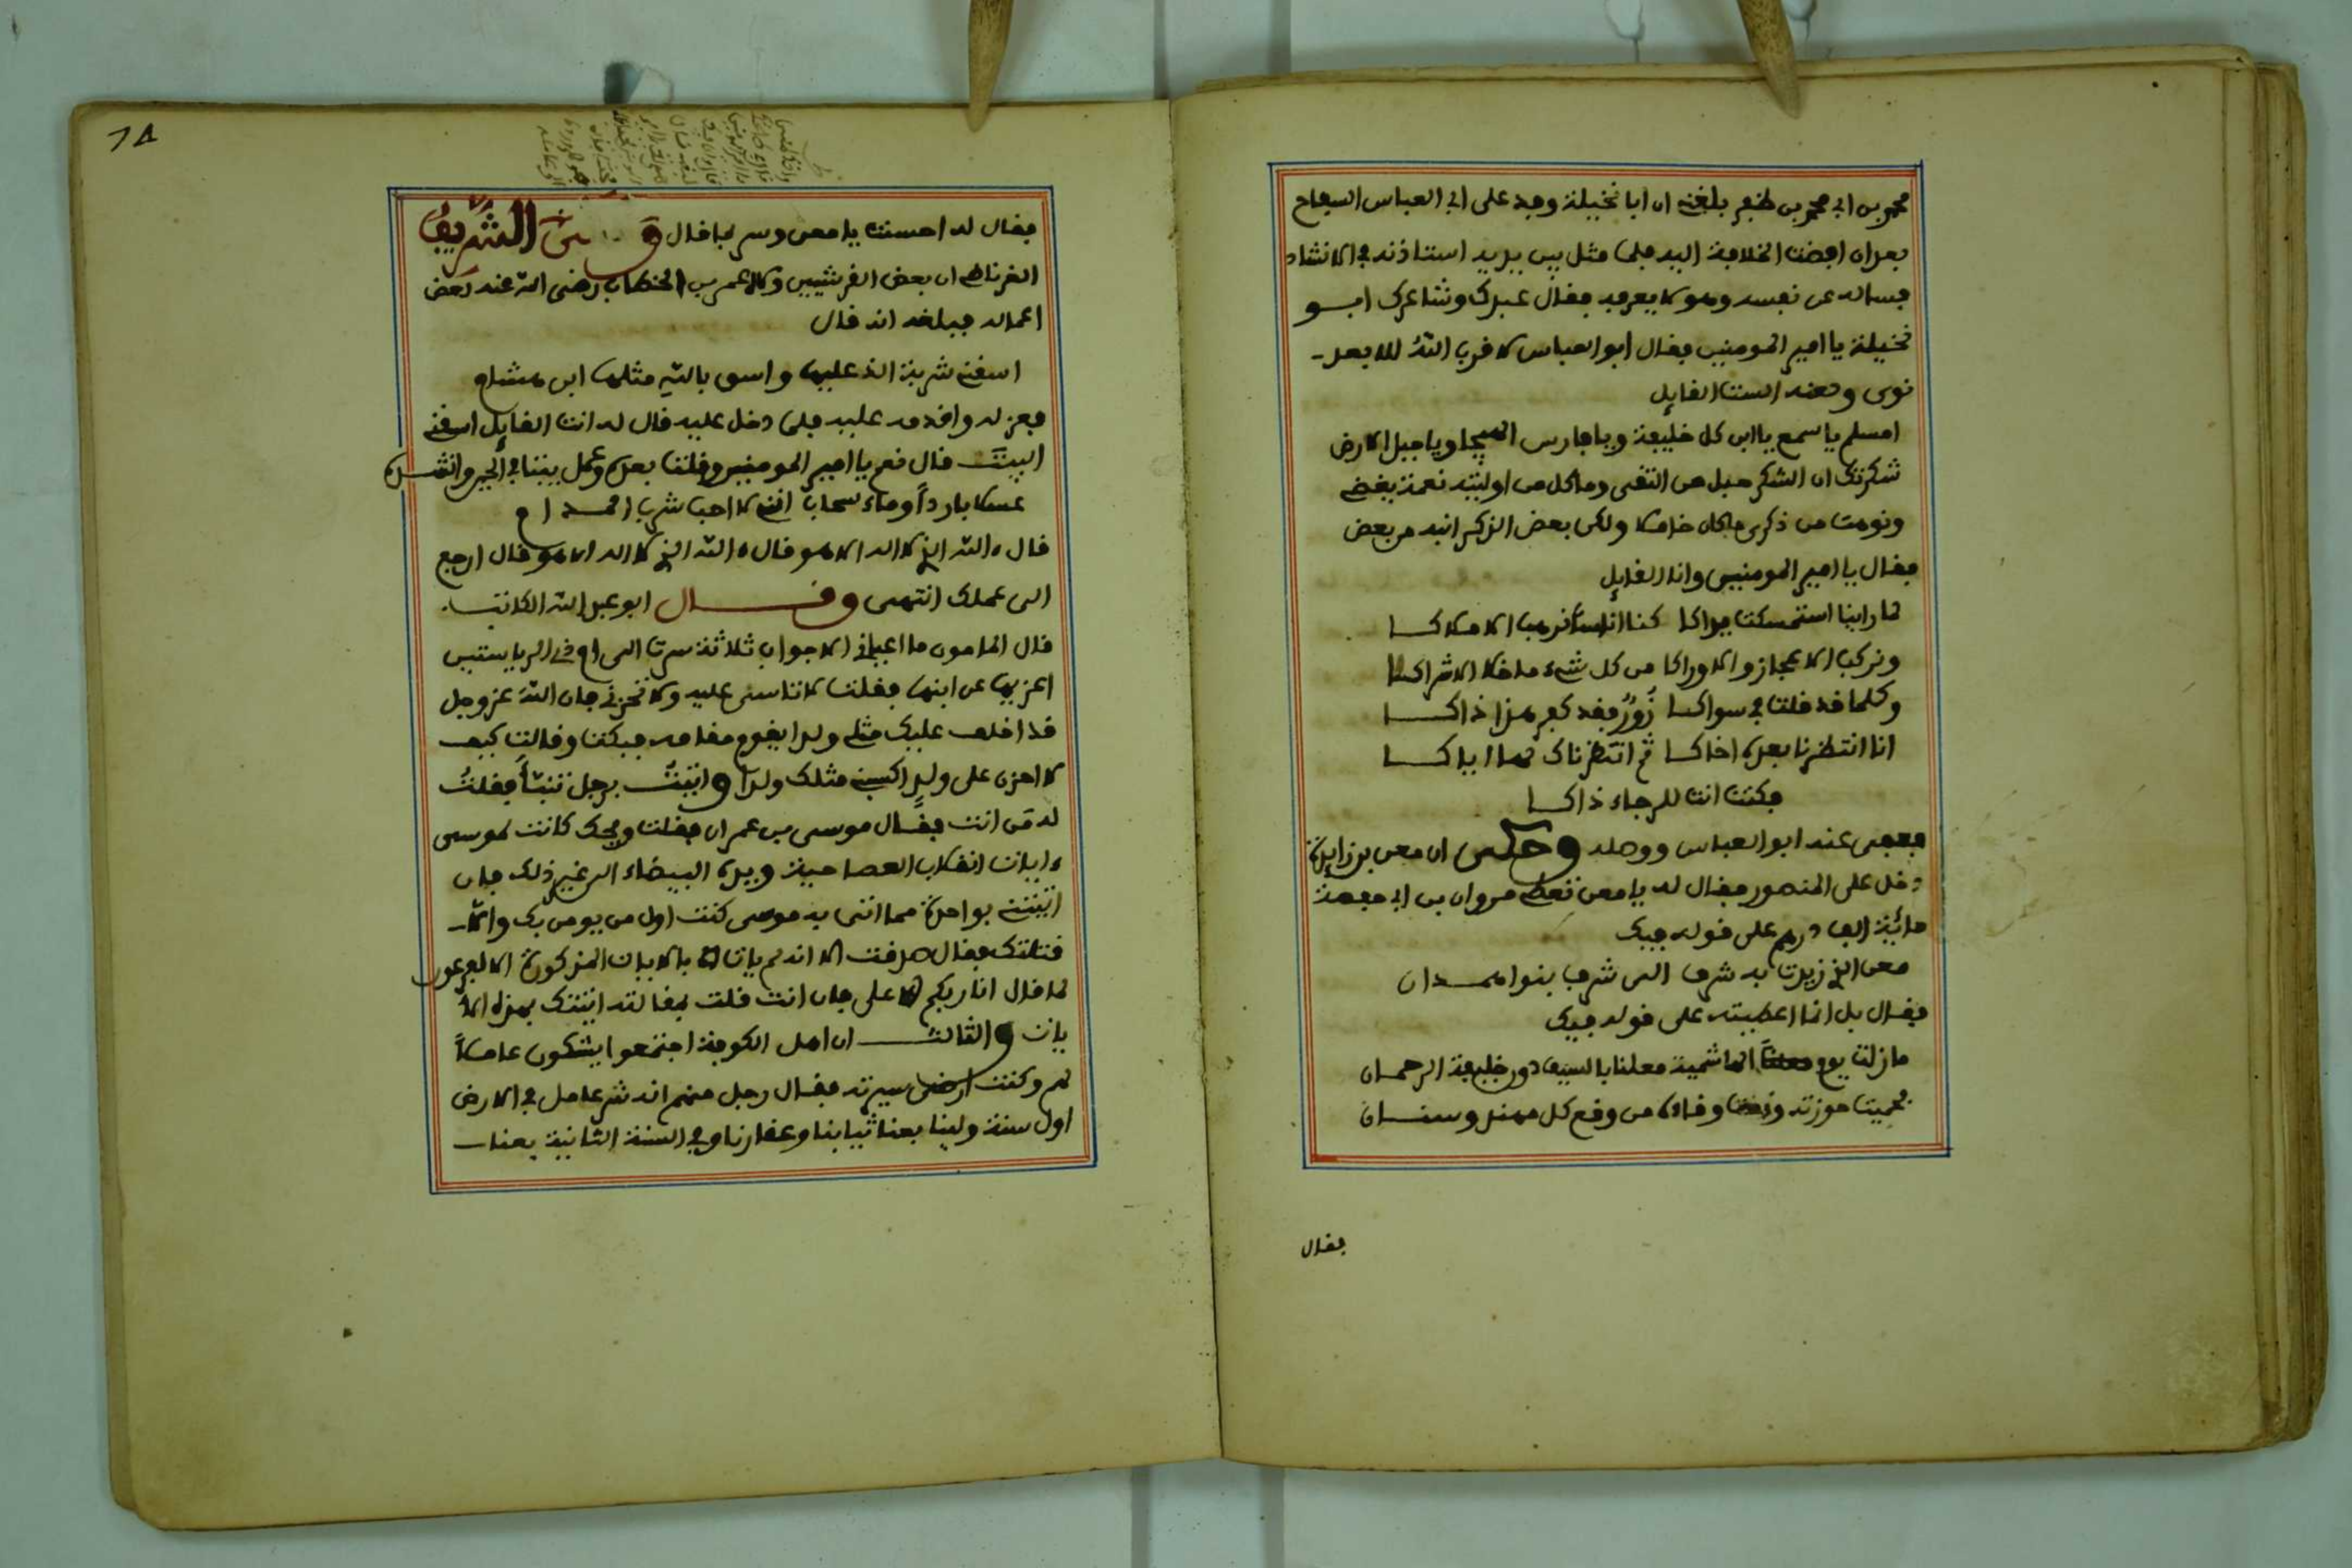 محمد بن ابي محمد بن ظفر بلغني ان ابا نخيلة وفد على ابي العباس السفاح
بعد ان افضت الخلافة اليه فلما مثل بين يديه استاذنه في الانشاد
فساله عن نفسه وهو لا يعرفه فقال عبدك وشاعرك ابو
نخيلة يا امير المومنين فقال ابو العباس لا قرب الله الابعد
نوى ولعنه الست القايل
امسلم يا سمع يا ابن كل خليفة ويا فارس الهيجا ويا جبل الارض
شكرتك ان الشكر حبل من التقى وما كل من اوليته نعمة يقضي
ونوهت من ذكري وما كان خاملا ولكن بعض الذكر انبه من بعض
فقال يا امير المومنين وانا القايل
لما راينا استمسكت يداكا كنا اناسا نرهب الاملاكا
ونركب الاعجاز والاوراكا من كل شيء ما خلا الاشراكا
وكلما قد قلت في سواكا زور فقد كفر هذا ذاكا
انا انتظرنا بعدها اخاكا ثم انتظرناك لها اياكا
فكنت انت للرجاء ذاكا
فعفى عنه ابو العباس ووصله وحكى ان معن بن زايدة
دخل على المنصور فقال له يا معن تعطي مروان بن ابي حفصة
مائية الف درهم على قوله فيك
معن الذي زيدت به شرفا الى شرف بنوا همدان
فقال بل انما اعطيته على قوله فيك
ما زلت يوم الهاشمية معلنا بالسيف دون خليفة الرحمان
فحميت حوزته وكنت وقاءه من وقع كل مهند وسنان
فقال
فقال له احسنت يا معن وسر بما قال الشريف
الغرناطي ان بعض القرشيين ولاه عمر بن الخطاب رضي الله عنه بعض
اعماله فبلغه انه قال
اسقني شربة الذ عليها واسق بالله مثلها ابن هشام
فعزله واقدمه عليه فلما دخل عليه قال له انت القايل اسقني
البيت قال نعم يا امير المومنين وقلت بعده
عسلا باردا وماء سحاب انني لا احب شرب المدام
قال ءالله الذي لا اله الا هو قال ءالله الذي لا اله الا هو قال ارجع
الى عملك انتهى وقال ابو عبد الله الكاتب
قال المامون ما اعياني الا جواب ثلاثة سرت الى ام ذي الرياستين
اعزيها عن ابنها فقلت لا تاسي عليه ولا تحزني فان الله عز وجل
قد اخلف عليك مثلي ولدا يقوم مقامه فبكت وقالت كيف
لا احزن على ولد اكسبني مثلك ولدا واتيت برجل تنبأ فقلت
له من انت فقال موسى بن عمران فقلت ويحك كانت لموسى
ءايات انقلاب العصا حية ويده البيضاء الى غير ذلك فان
اتيتني بواحدة مما اتى به موسى كنت اول من يومن بك والا
قتلتك فقال صدقت الا انه لم يات بالايات المذكورة الا لفرعون
لما قال انا ربكم الاعلى فان انت قلت بمقالته اتيتك بهذه الا
يات والثالث ان اهل الكوفة اجتمعوا يشكون عاملا
لهم وكنت ارضى سيرته فقال رجل منهم انه شر عامل في الارض
اول سنة ولينا بعنا ثيابنا وعقارنا وفي السنة الثانية بعنا